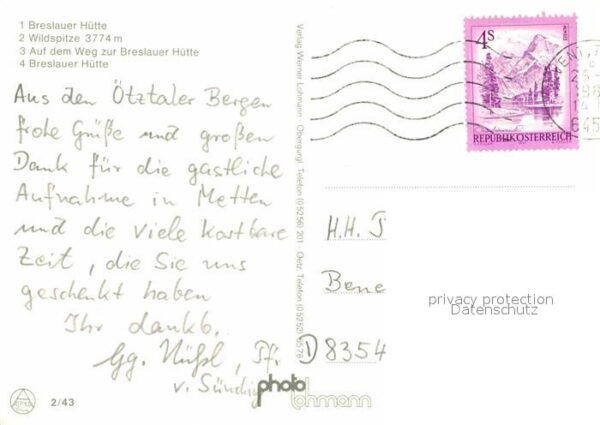 1 Breslauer Hütte
2 Wildspitze 3774 m
3 Auf dem Weg zur Breslauer Hütte
4 Breslauer Hütte
Aus den Ötztaler Bergen
frohe Grüße und großen
Dank für die gastliche
Aufnahme in Metten
und die viele kostbare
Zeit, die Sie uns
geschenkt haben
Ihr dankb.
Gg. Nüßl, Pfr.
v.
photo
Lohmann
2/43
Verlag Werner Lohmann · Obergurgl, Telefon (05256) 201 · Oetz, Telefon (05252) 6578
4S
REPUBLIK ÖSTERREICH
H.H. J
Bene
D 8354
privacy protection
Datenschutz